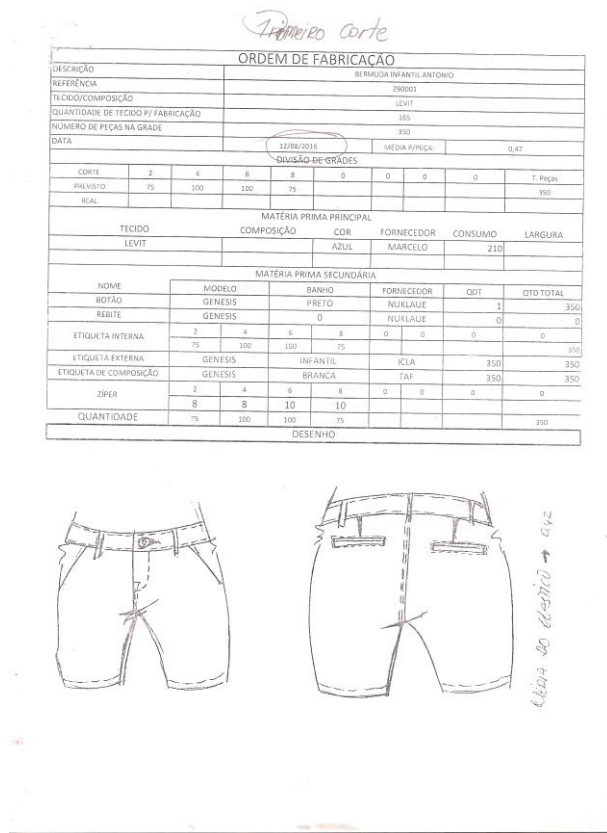 Primeiro Corte
ORDEM DE FABRICAÇÃO
DESCRIÇÃO BERMUDA INFANTIL ANTONIO
REFERÊNCIA 290001
TECIDO/COMPOSIÇÃO LEVIT
QUANTIDADE DE TECIDO P/ FABRICAÇÃO 165
NÚMERO DE PEÇAS NA GRADE 350
DATA 12/08/2016 MÉDIA P/PEÇA: 0,47
DIVISÃO DE GRADES
CORTE 2 4 6 8 0 0 0 0 T. Peças
PREVISTO 75 100 100 75 350
REAL
MATÉRIA PRIMA PRINCIPAL
TECIDO COMPOSIÇÃO COR FORNECEDOR CONSUMO LARGURA
LEVIT AZUL MARCELO 210
MATÉRIA PRIMA SECUNDÁRIA
NOME MODELO BANHO FORNECEDOR QDT QTD TOTAL
BOTÃO GENESIS PRETO NUKLAUE 1 350
REBITE GENESIS 0 NUKLAUE 0 0
ETIQUETA INTERNA 2 4 6 8 0 0 0 0
75 100 100 75 350
ETIQUETA EXTERNA GENESIS INFANTIL ICLA 350 350
ETIQUETA DE COMPOSIÇÃO GENESIS BRANCA TAF 350 350
ZÍPER 2 4 6 8 0 0 0 0
8 8 10 10
QUANTIDADE 75 100 100 75 350
DESENHO
MÉDIA DO ELASTICO →